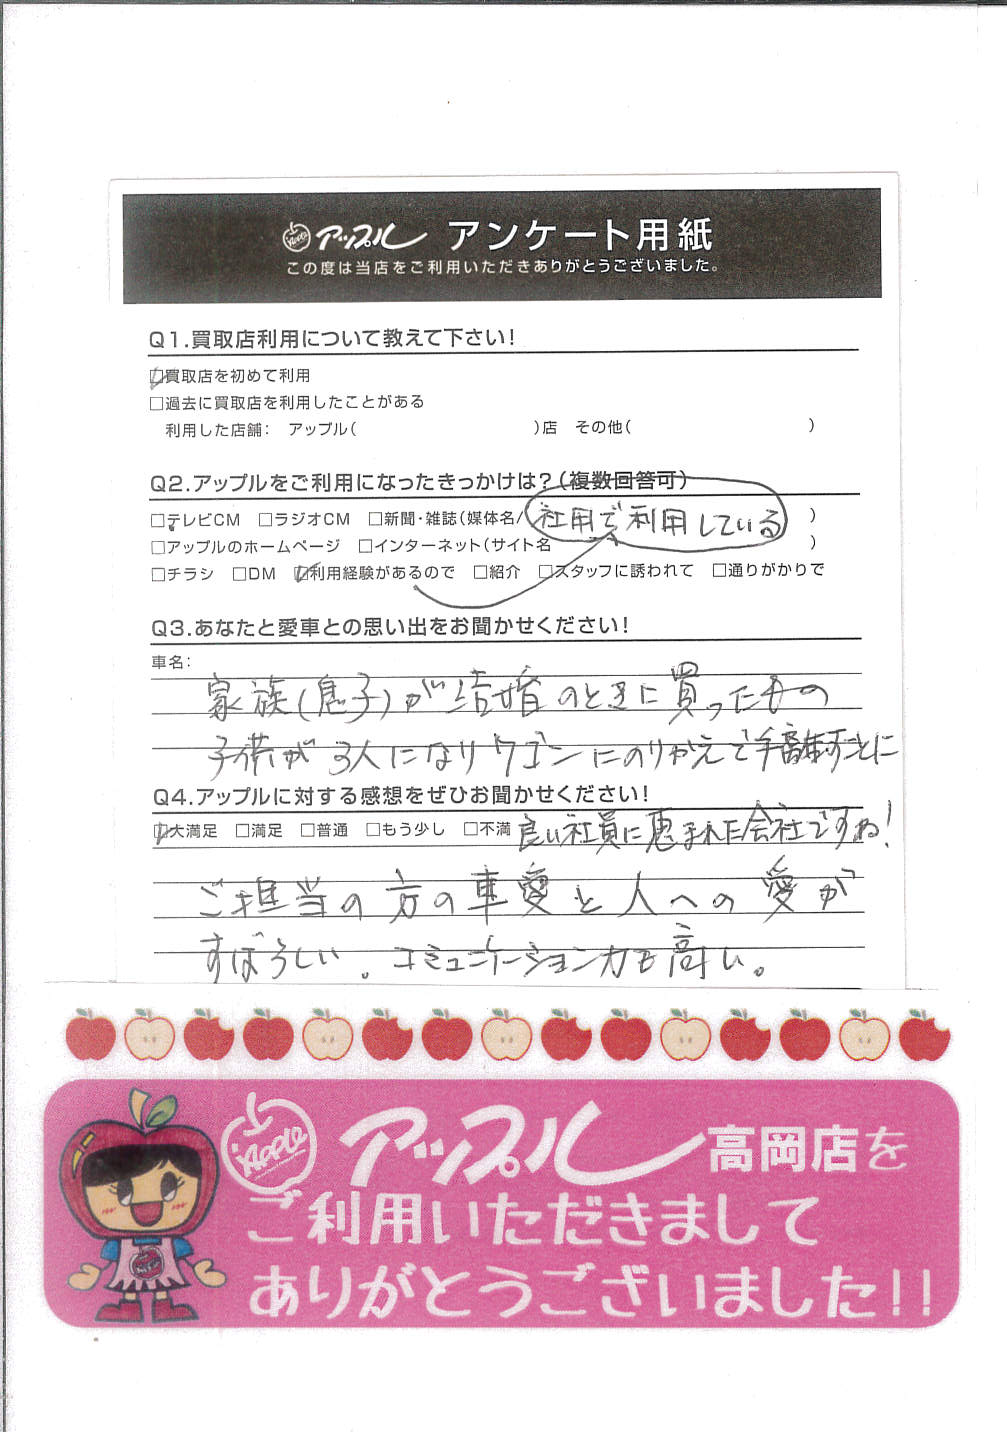 Apple アップル アンケート用紙
この度は当店をご利用いただきありがとうございました。
Q1.買取店利用について教えて下さい!
☑買取店を初めて利用
□過去に買取店を利用したことがある
利用した店舗: アップル( )店 その他( )
Q2.アップルをご利用になったきっかけは?(複数回答可)
□テレビCM □ラジオCM □新聞・雑誌(媒体名/ 社用で利用している )
□アップルのホームページ □インターネット(サイト名 )
□チラシ □DM ☑利用経験があるので □紹介 □スタッフに誘われて □通りがかりで
Q3.あなたと愛車との思い出をお聞かせください!
車名:
家族(息子)が結婚のときに買ったもの
子供が3人になりワゴンにのりかえで手離すことに
Q4.アップルに対する感想をぜひお聞かせください!
☑大満足 □満足 □普通 □もう少し □不満 良い社員に恵まれた会社ですね!
ご担当の方の車愛と人への愛が
すばらしい。コミュニケーション力も高い。
Apple アップル 高岡店を
ご利用いただきまして
ありがとうございました!!